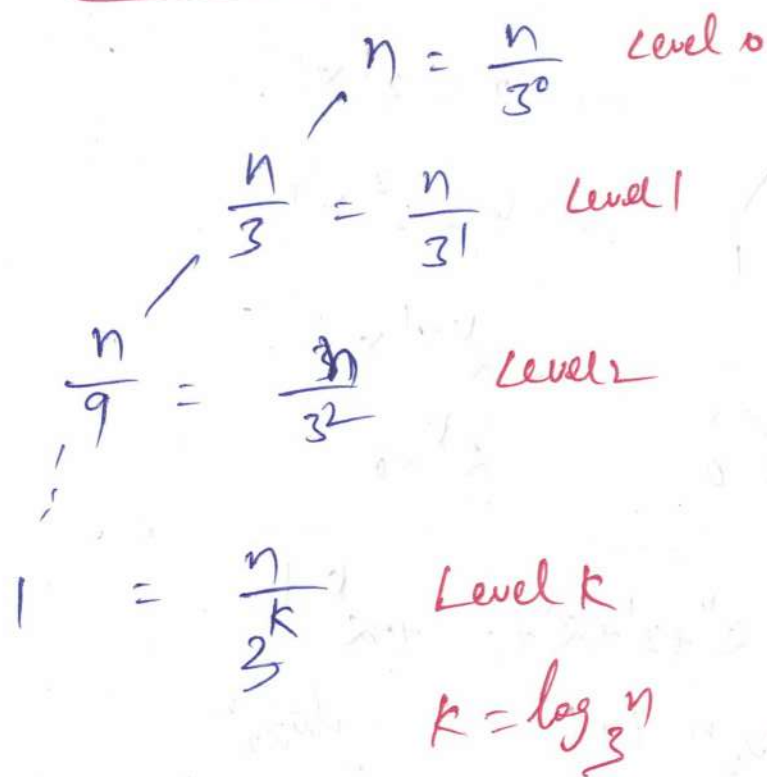 n = n/3⁰ Level 0
n/3 = n/3¹ Level 1
n/9 = n/3² Level 2
1 = n/3ᴷ Level K
K = log₃n